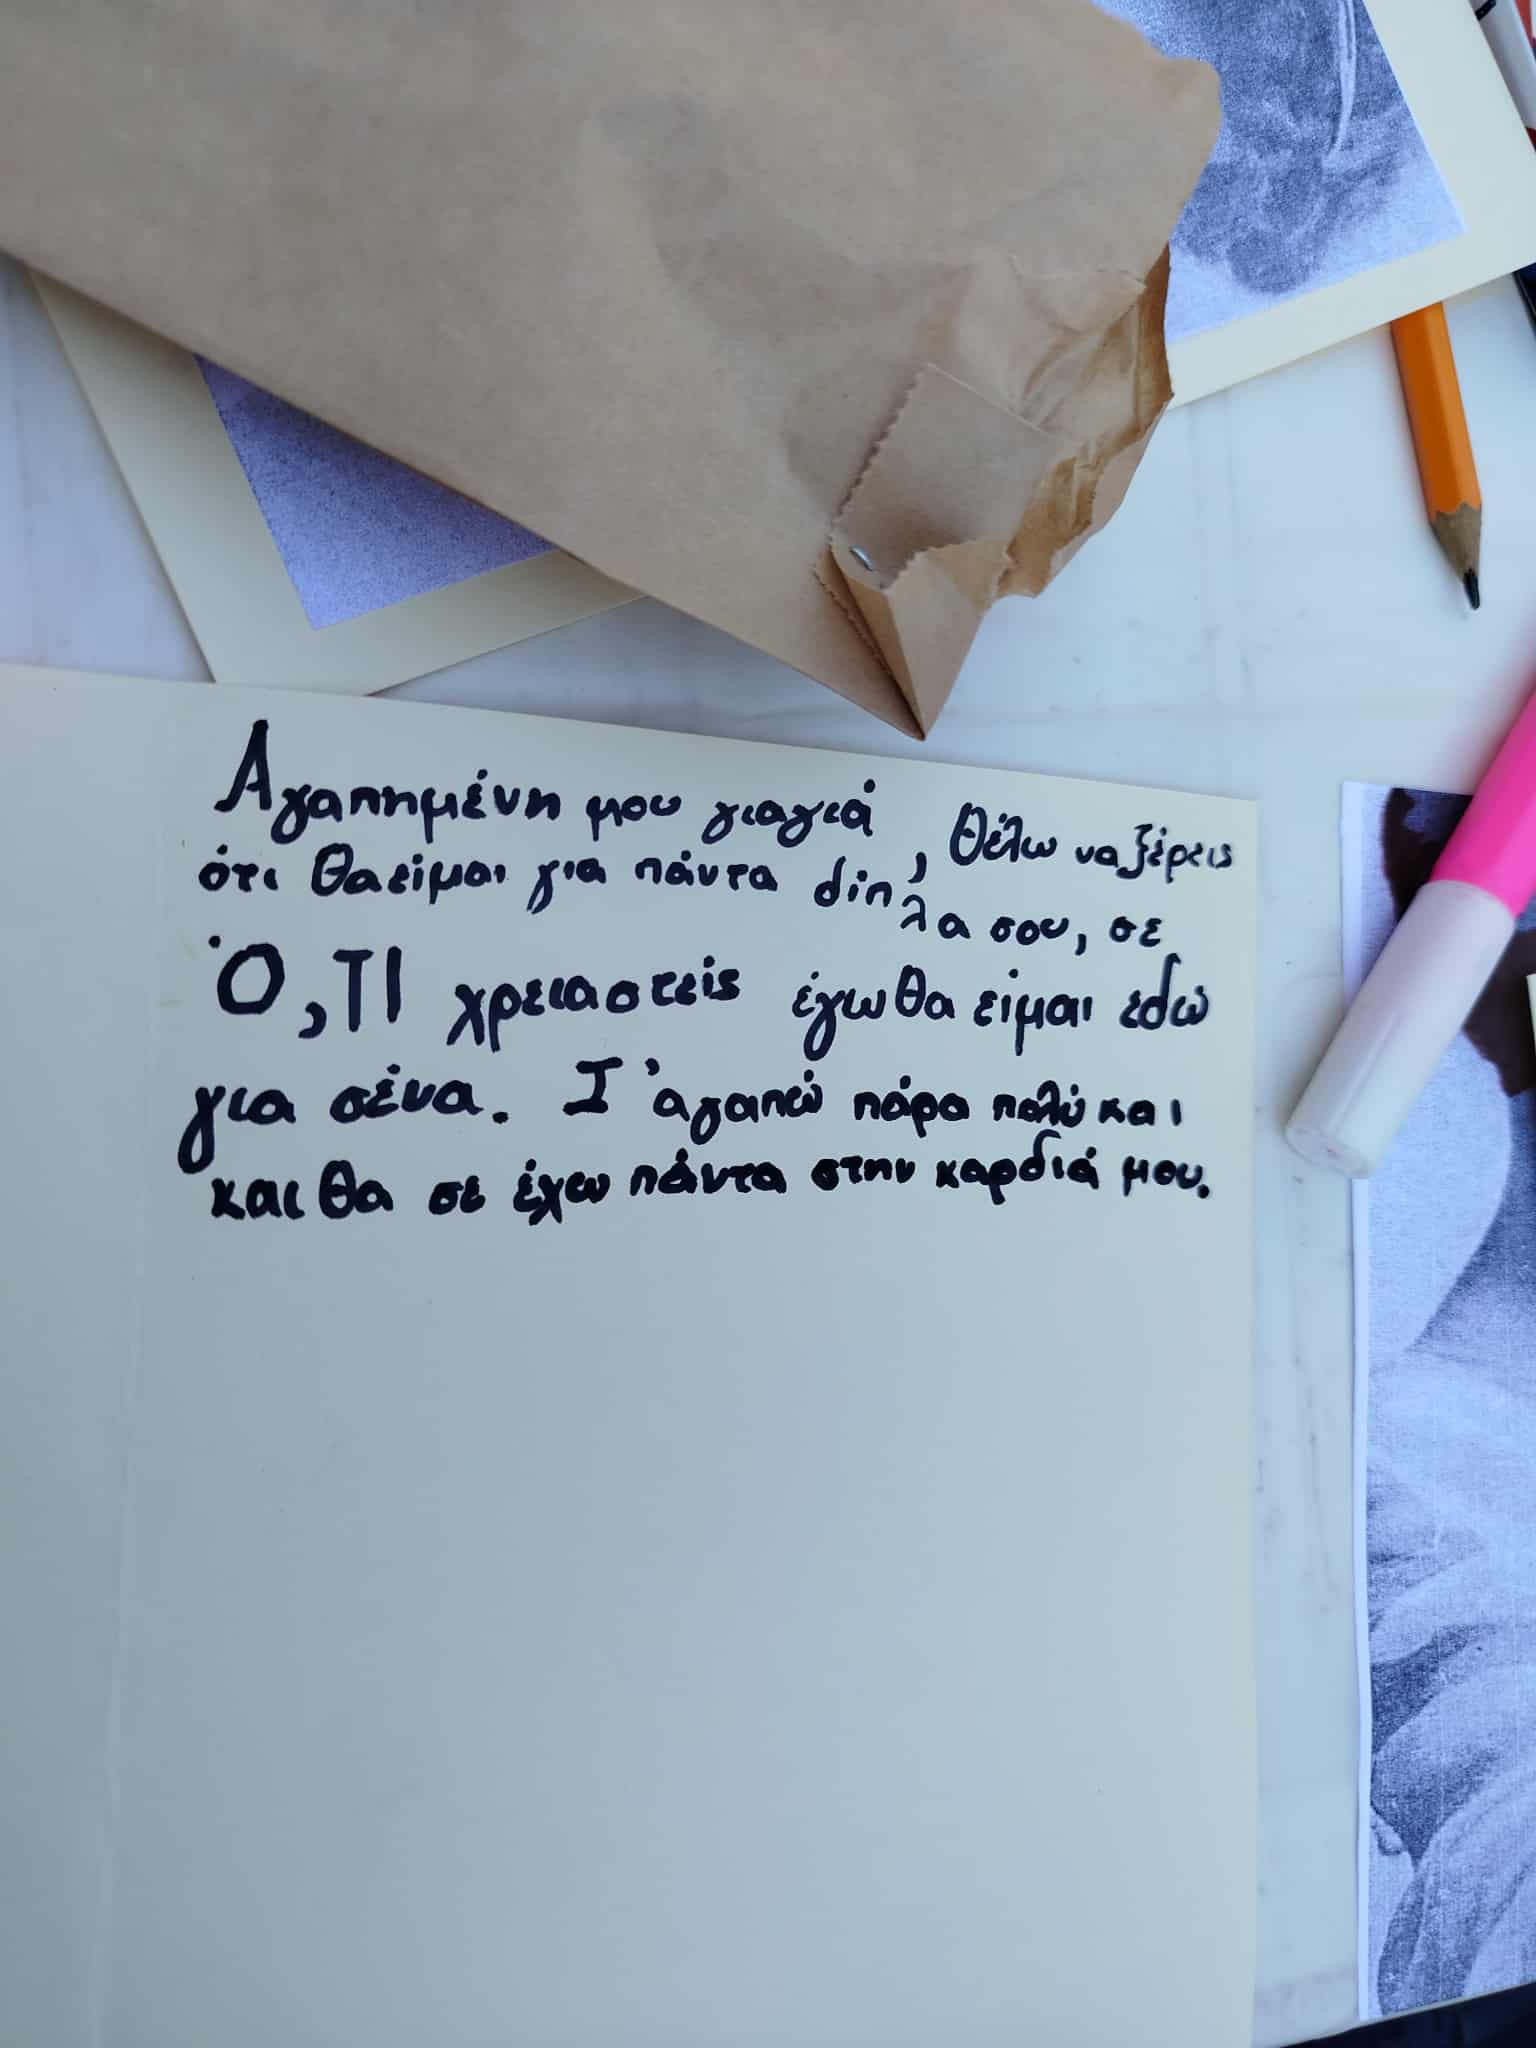 Αγαπημένη μου γιαγιά, θέλω να ξέρεις
ότι θα είμαι για πάντα δίπλα σου, σε
Ό,ΤΙ χρειαστείς έγω θα είμαι εδώ
για σένα. Σ'αγαπώ πάρα πολύ και
και θα σε έχω πάντα στην καρδιά μου.